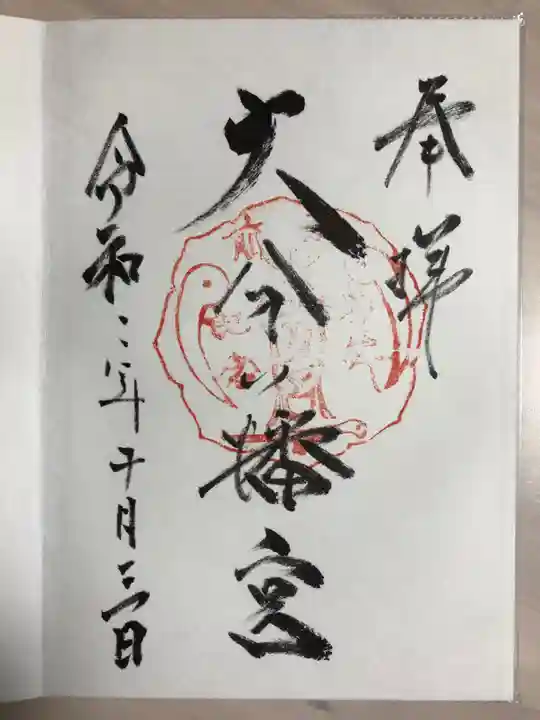 奉拝
大分八幡宮
令和二年十月三日